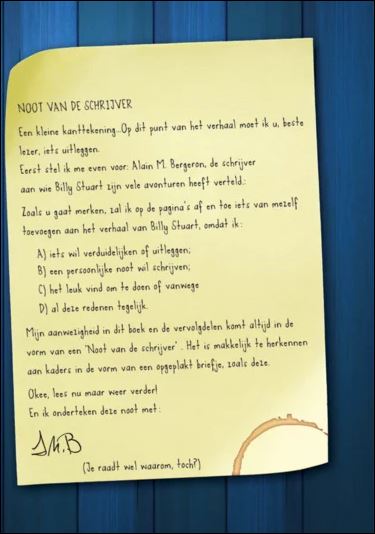 NOOT VAN DE SCHRIJVER
Een kleine kanttekening...Op dit punt van het verhaal moet ik u, beste
lezer, iets uitleggen.
Eerst stel ik me even voor: Alain M. Bergeron, de schrijver
aan wie Billy Stuart zijn vele avonturen heeft verteld.:
Zoals u gaat merken, zal ik op de pagina's af en toe iets van mezelf
toevoegen aan het verhaal van Billy Stuart, omdat ik:
A) iets wil verduidelijken of uitleggen;
B) een persoonlijke noot wil schrijven;
C) het leuk vind om te doen of vanwege
D) al deze redenen tegelijk.
Mijn aanwezigheid in dit boek en de vervolgdelen komt altijd in de
vorm van een 'Noot van de schrijver' . Het is makkelijk te herkennen
aan kaders in de vorm van een opgeplakt briefje, zoals deze.
Okee, lees nu maar weer verder!
En ik onderteken deze noot met:
A.M.B
(Je raadt wel waarom, toch?)